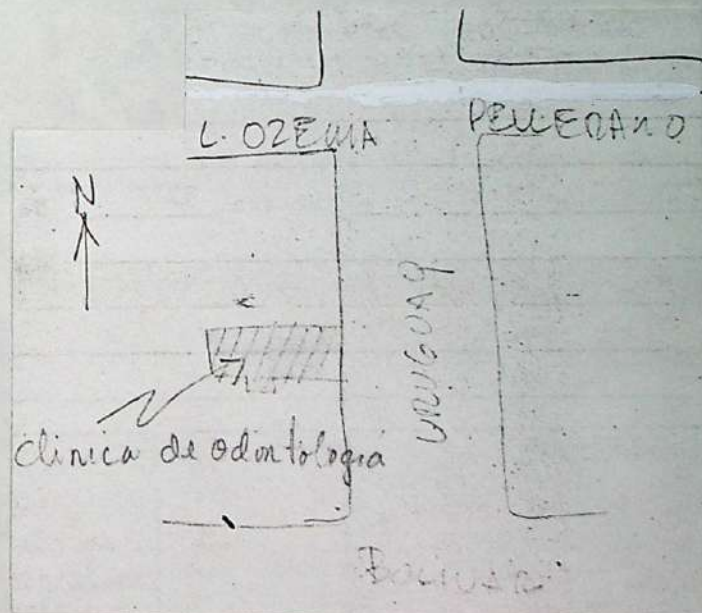 L. OZEMA PELLERANO
N
URUGUAY
clinica de odontologia
BOLIVAR